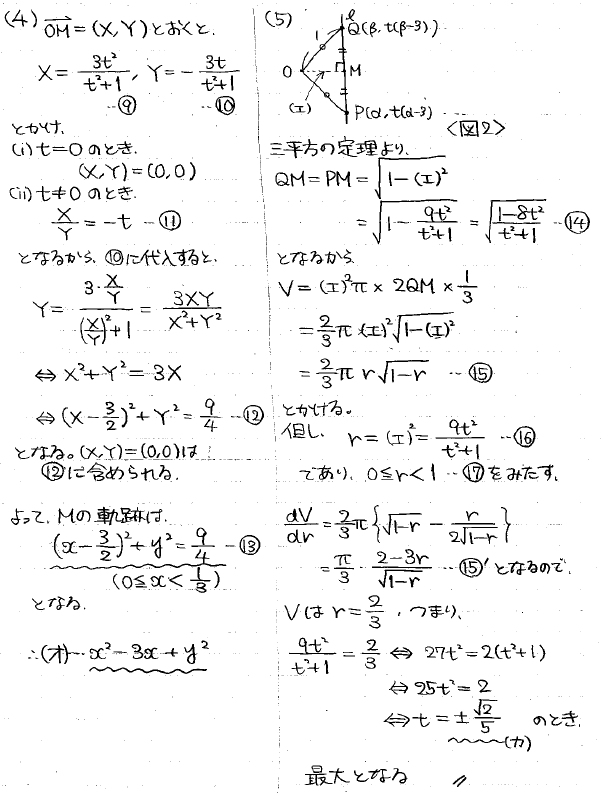 (4) →OM = (X, Y) とおくと.
X = 3t²/(t²+1), Y = - 3t/(t²+1)
⑨ ⑩
とかけ.
(i) t=0 のとき.
(X, Y) = (0, 0)
(ii) t≠0 のとき.
X/Y = -t ─⑪
となるから、⑩に代入すると.
Y = (3・X/Y)/((X/Y)²+1) = 3XY/(X²+Y²)
⇔ X²+Y² = 3X
⇔ (X-3/2)² + Y² = 9/4 ─⑫
となる。(X, Y)=(0, 0)は
⑫に含められる.
よって、Mの軌跡は.
(x-3/2)² + y² = 9/4 ─⑬
(0≦x<1/3)
となる.
∴(オ)… x²-3x+y²
(5)
l
Q(β, t(β-3))
1
O
M
(エ)
P(α, t(α-3))
<図2>
三平方の定理より、
QM = PM = √(1-(エ)²)
= √(1 - 9t²/(t²+1)) = √((1-8t²)/(t²+1)) ─⑭
となるから
V = (エ)²π × 2QM × 1/3
= 2/3 π・(エ)²√(1-(エ)²)
= 2/3 π r√(1-r) …⑮
とかける。
但し、 r = (エ)² = 9t²/(t²+1) ─⑯
であり、0≦r<1 …⑰をみたす.
dV/dr = 2/3 π{√(1-r) - r/(2√(1-r))}
= π/3・(2-3r)/√(1-r) …⑮' となるので.
Vは r = 2/3 、つまり、
9t²/(t²+1) = 2/3 ⇔ 27t² = 2(t²+1)
⇔ 25t² = 2
⇔ t = ±√2/5 のとき.
(カ)
最大となる 〃